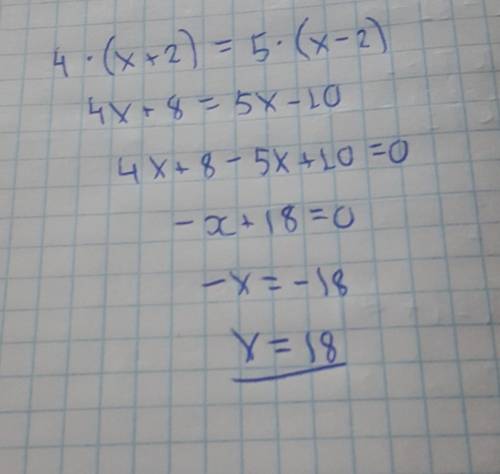 4 · (x + 2) = 5 · (x - 2)
4x + 8 = 5x - 10
4x + 8 - 5x + 10 = 0
- x + 18 = 0
- x = - 18
x = 18